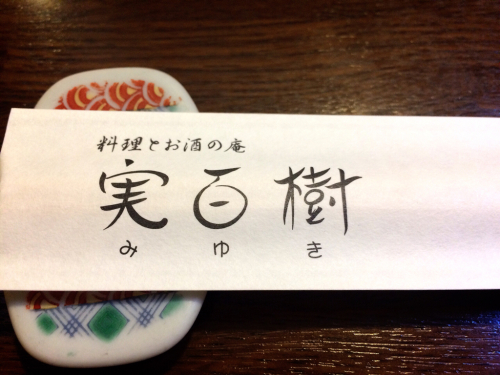 料理とお酒の庵
実百樹
みゆき